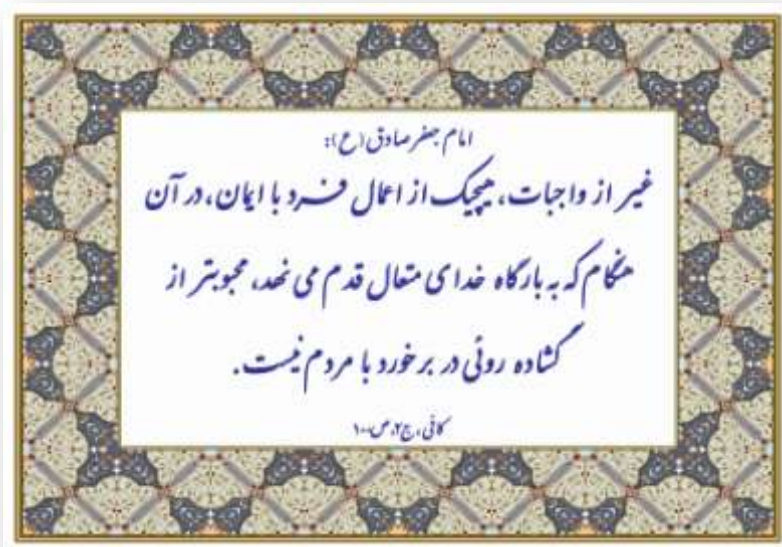 امام جعفر صادق (ع):
غیر از واجبات، هیچیک از اعمال فرد با ایمان، در آن
هنگام که به بارگاه خدای متعال قدم می نهد، محبوبتر از
گشاده روئی در برخورد با مردم نیست.
کافی، ج۲، ص۱۰۰